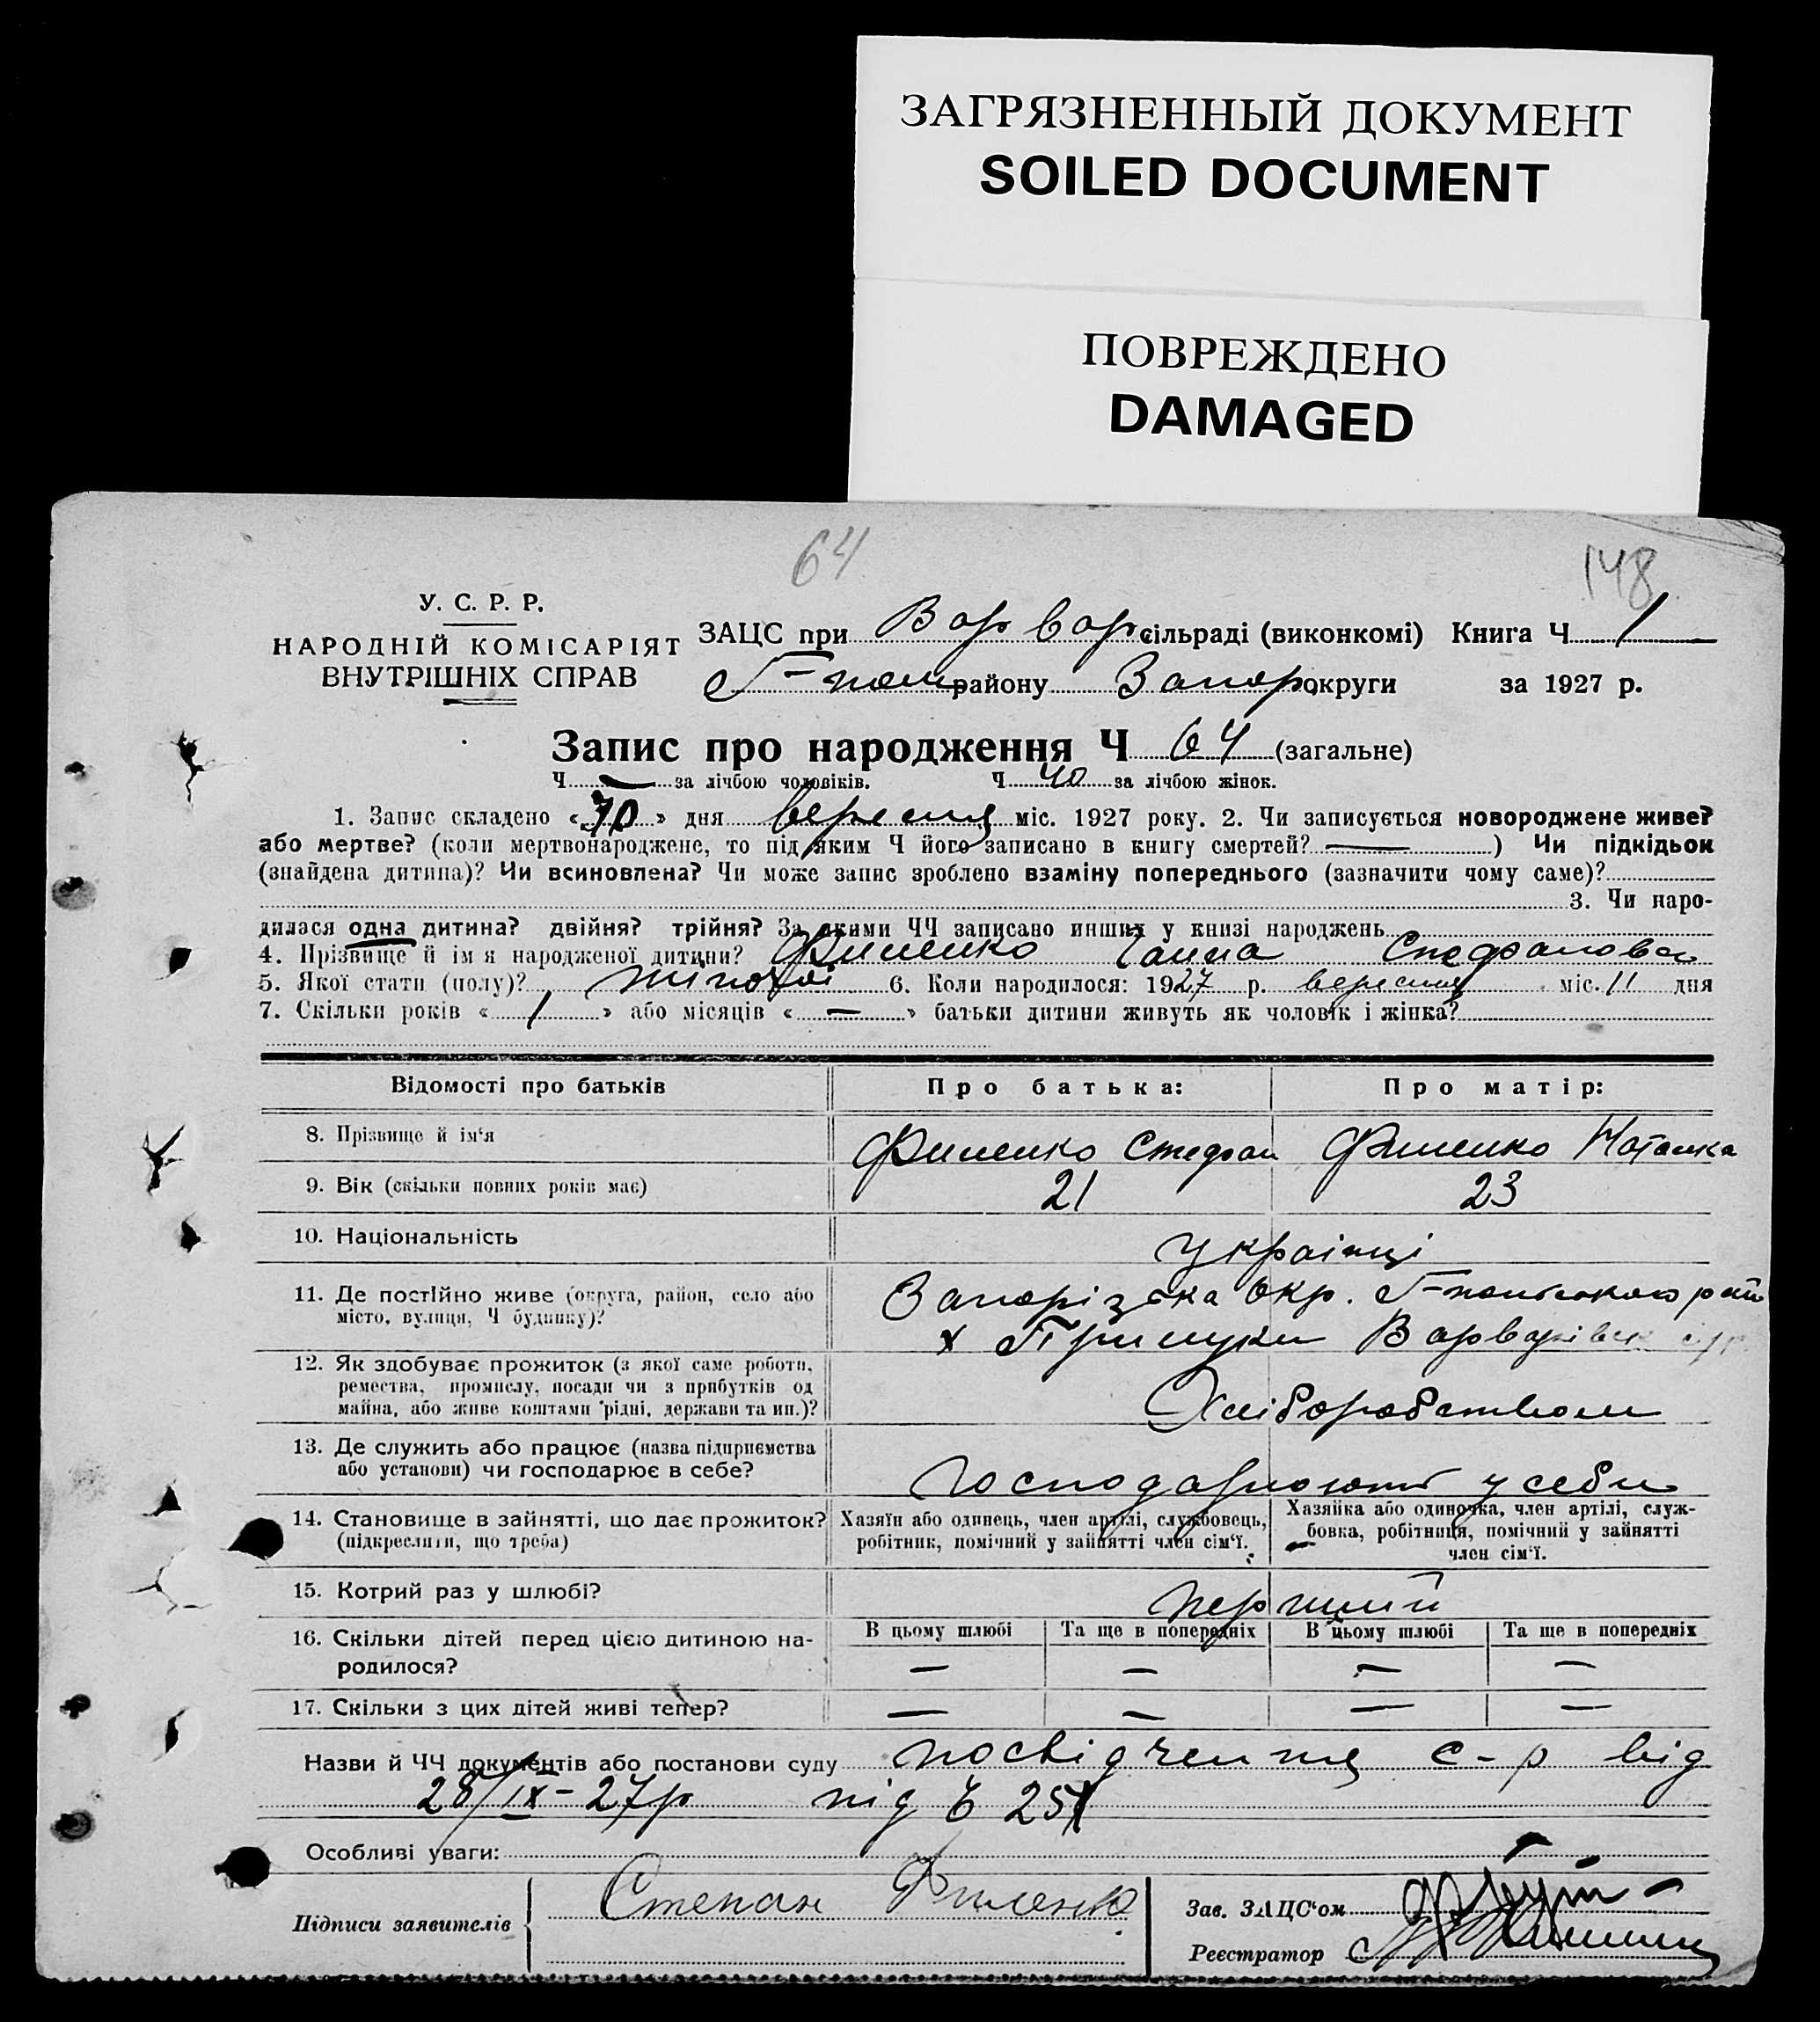 ЗАГРЯЗНЕННЫЙ ДОКУМЕНТ
SOILED DOCUMENT
ПОВРЕЖДЕНО
DAMAGED
64
148
У. С. Р. Р.
НАРОДНІЙ КОМІСАРІЯТ
ВНУТРІШНІХ СПРАВ
ЗАЦС при Варвар. сільраді (виконкомі) Книга Ч 1
Г-пол. району Запор. округи за 1927 р.
Запис про народження Ч 64 (загальне)
Ч — за лічбою чоловіків. Ч 40 за лічбою жінок.
1. Запис складено « 30 » дня вересня міс. 1927 року. 2. Чи записується новороджене живе?
або мертве? (коли мертвонароджене, то під яким Ч його записано в книгу смертей? — ) Чи підкідьок
(знайдена дитина)? Чи всиновлена? Чи може запис зроблено взаміну попереднього (зазначити чому саме)?
3. Чи наро-
дилася одна дитина? двійня? трійня? За якими ЧЧ записано инших у книзі народжень
4. Прізвище й ім я народженої дитини? Филенко Ганна Стефановна
5. Якої стати (полу)? жіночої 6. Коли народилося: 1927 р. вересня міс. 11 дня
7. Скільки років « 1 » або місяців « — » батьки дитини живуть як чоловік і жінка?
Відомості про батьків Про батька: Про матір:
8. Прізвище й ім‘я Филенко Стефан Филенко Наталка
9. Вік (скільки повних років має) 21 23
10. Національність українці
11. Де постійно живе (округа, район, село або Запорізька Окр. Г-польського
місто, вулиця, Ч будинку)? х Варварівс
12. Як здобуває прожиток (з якої саме роботи,
ремества, промислу, посади чи з прибутків од
майна, або живе коштами рідні, держави та ин.)? Хліборобством
13. Де служить або працює (назва підприємства
або установи) чи господарює в себе? господарюють у себе
14. Становище в зайнятті, що дає прожиток? Хазяїн або одинець, член артілі, службовець, Хазяйка або одиночка, член артілі, служ-
(підкреслити, що треба) робітник, помічний у зайнятті член сім‘ї. бовка, робітниця, помічний у зайнятті
член сім‘ї.
15. Котрий раз у шлюбі? перший
16. Скільки дітей перед цією дитиною на- В цьому шлюбі Та ще в попередніх В цьому шлюбі Та ще в попередніх
родилося? — — — —
17. Скільки з цих дітей живі тепер? — — — —
Назви й ЧЧ документів або постанови суду посвідчення с-р від
28/IX-27р під 251
Особливі уваги:
Підписи заявителів Степан Филенко
Зав. ЗАЦС‘ом
Реєстратор